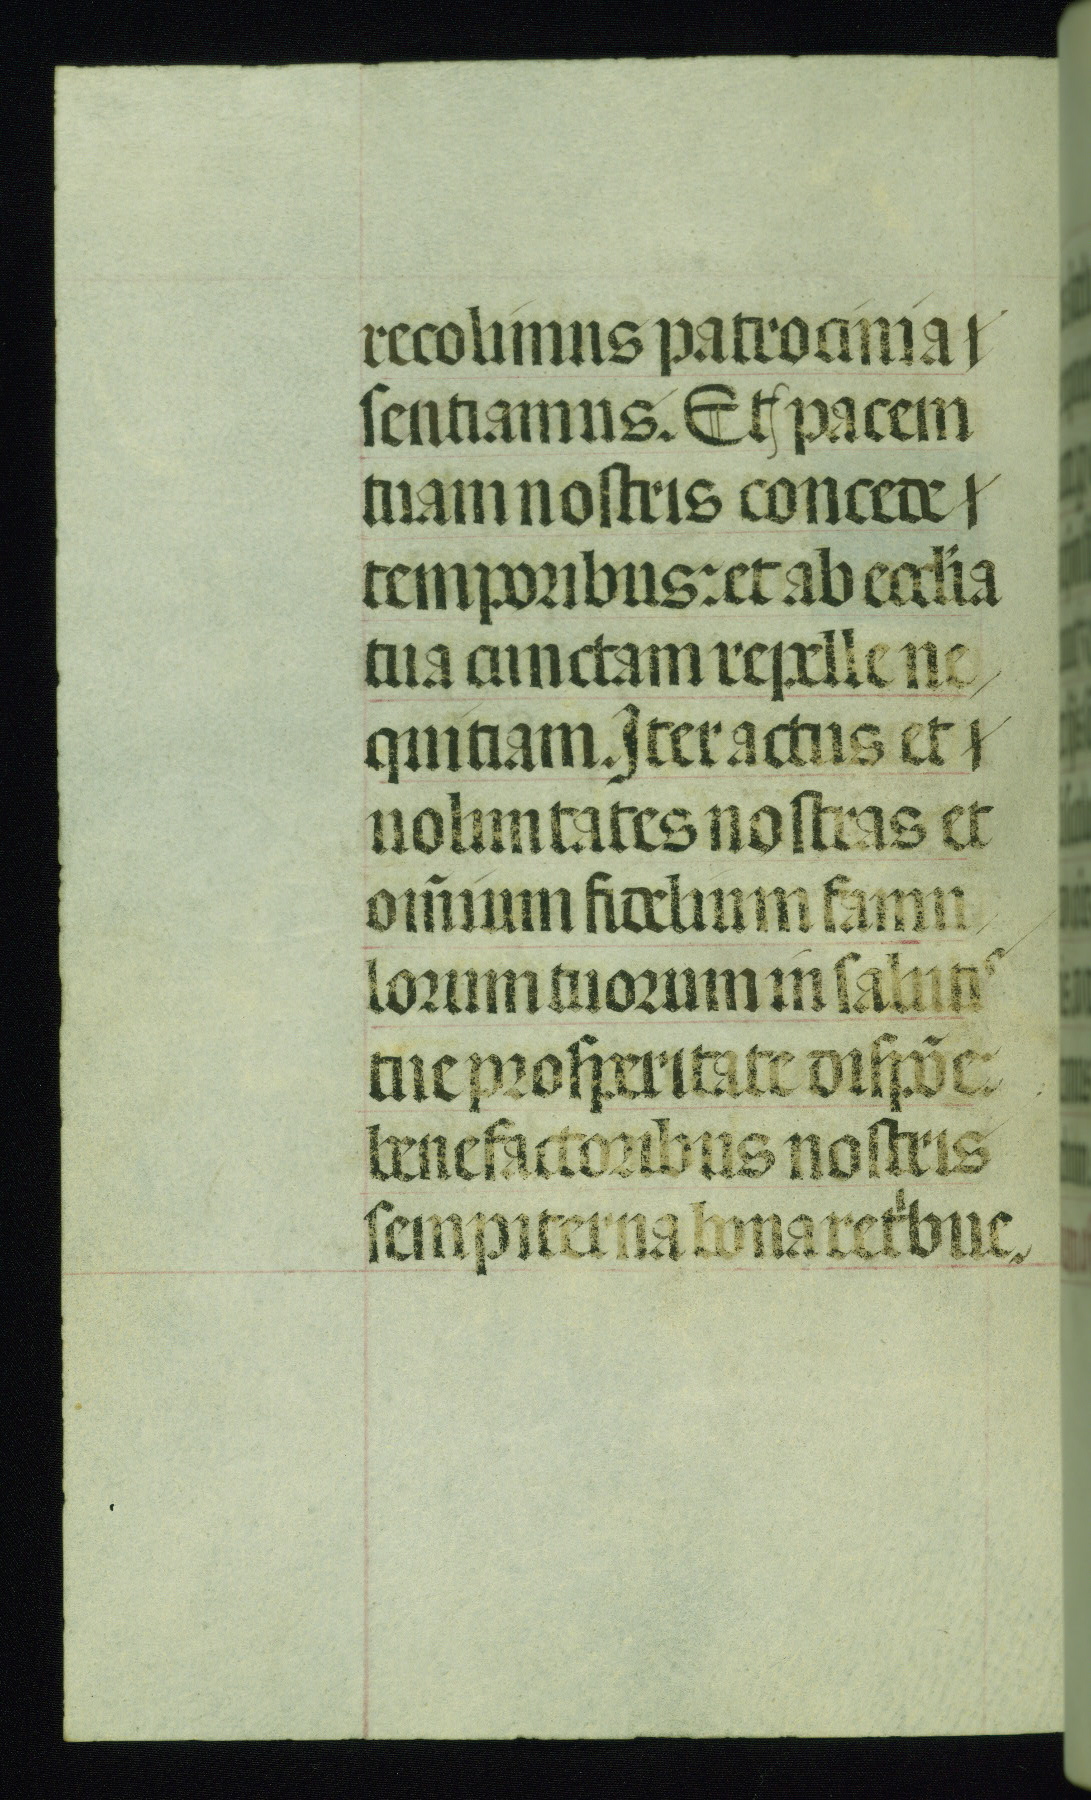 recolimus patrocinia
sentiamus. Et pacem
tuam nostris concede
temporibus: et ab ecclia
tua cunctam repelle ne
quitiam. Iter actus et
uoluntates nostras et
om̄ium fidelium famu
lorum tuorum in salutis
tue prosperitate dispōe:
benefactoribus nostris
sempiterna bona retͥbue,